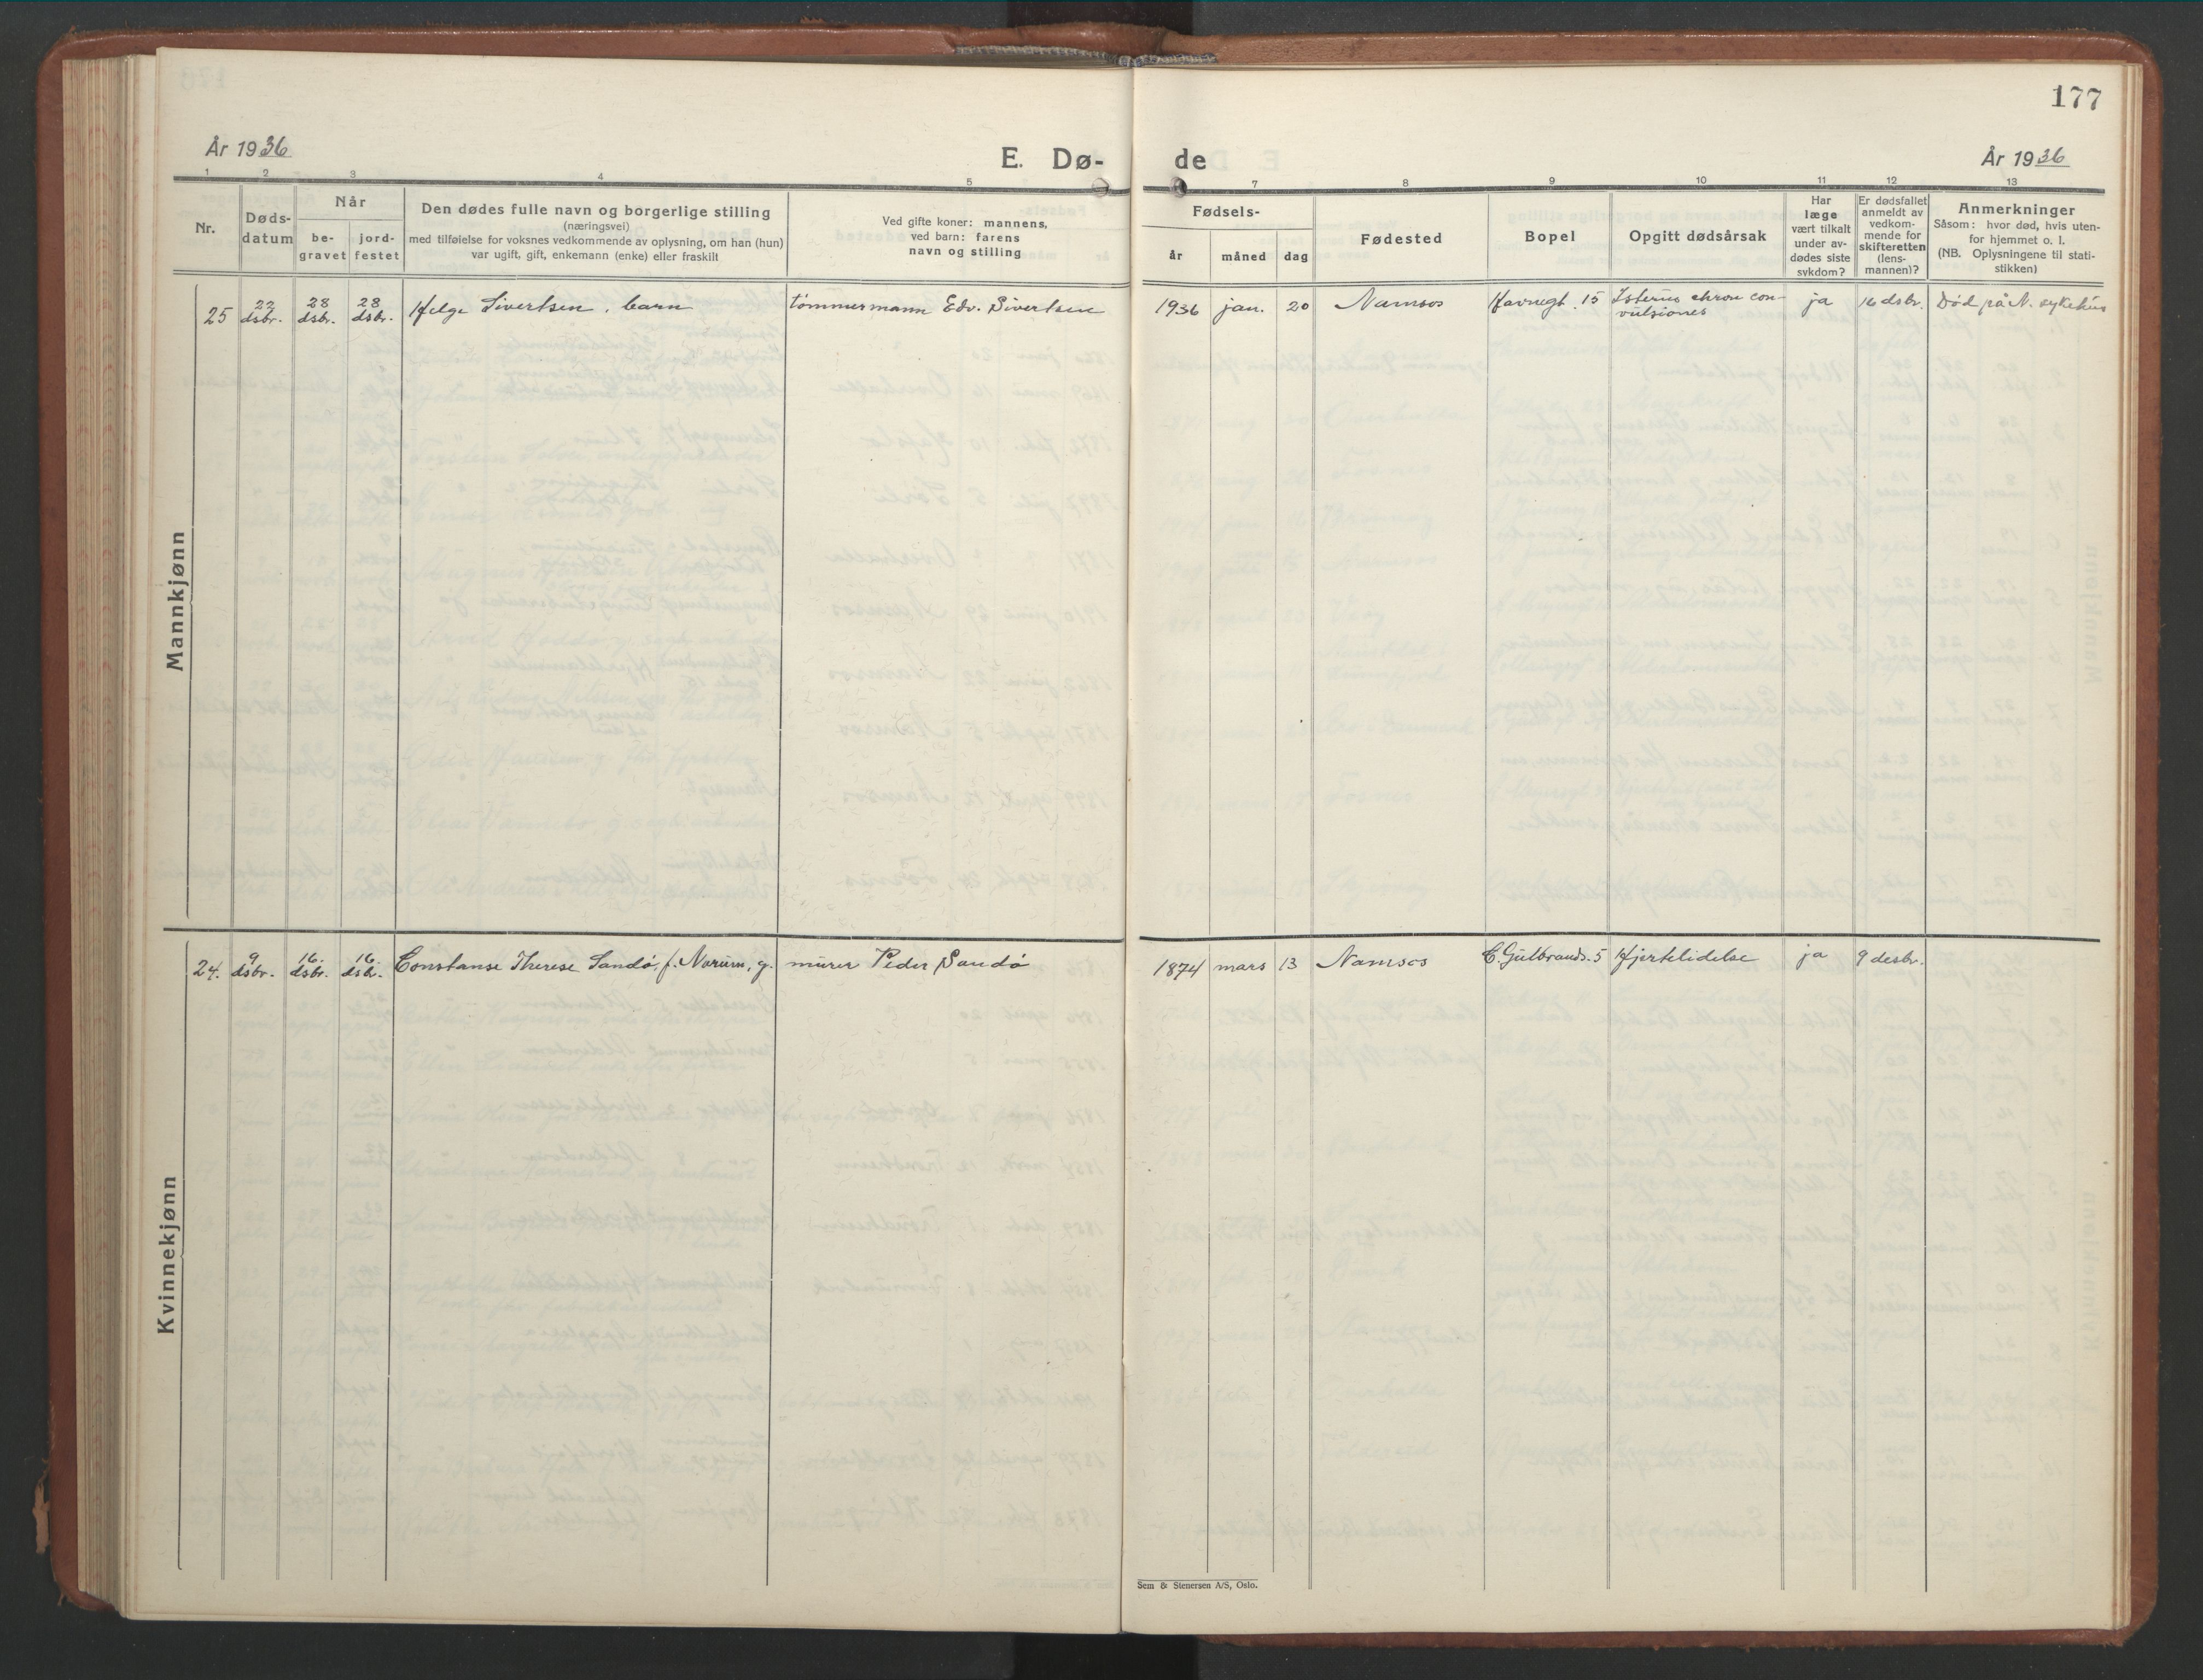 177
År 1936
E. Dø-
de
År 1936
1 2 3 4 5 7 8 9 10 11 12 13
Nr.
Døds-
datum
Når
be-
gravet
jord-
festet
Den dødes fulle navn og borgerlige stilling
(næringsvei)
med tilføielse for voksnes vedkommende av oplysning, om han (hun)
var ugift, gift, enkemann (enke) eller fraskilt
Ved gifte koner: mannens,
ved barn: farens
navn og stilling
Fødsels-
år måned dag
Fødested
Bopel
Opgitt dødsårsak
Har
læge
vært tilkalt
under av-
dødes siste
sykdom?
Er dødsfallet
anmeldt av
vedkom-
mende for
skifteretten
(lens-
mannen)?
Anmerkninger
Såsom: hvor død, hvis uten-
for hjemmet o. l.
(NB. Oplysningene til stati-
stikken)
Mannkjønn
25
22
dsbr.
28
dsbr.
28
dsbr.
Helge Sivertsen, barn
tømmermann Edv. Sivertsen
1936 jan. 20 Namsos
Havnegt. 15
Isterus chron con-
vulsiones
ja
16 dsbr.
Død på N. sykehus
Kvinnekjønn
24.
9
dsbr.
16.
dsbr.
16.
dsbr.
Constanse Therese Sandø, f. Norum, g.
murer Peder Sandø
1874 mars 13 Namsos
C. Gulbrands. 5
Hjertelidelse
ja
9 desbr.
Sem & Stenersen A/S, Oslo.